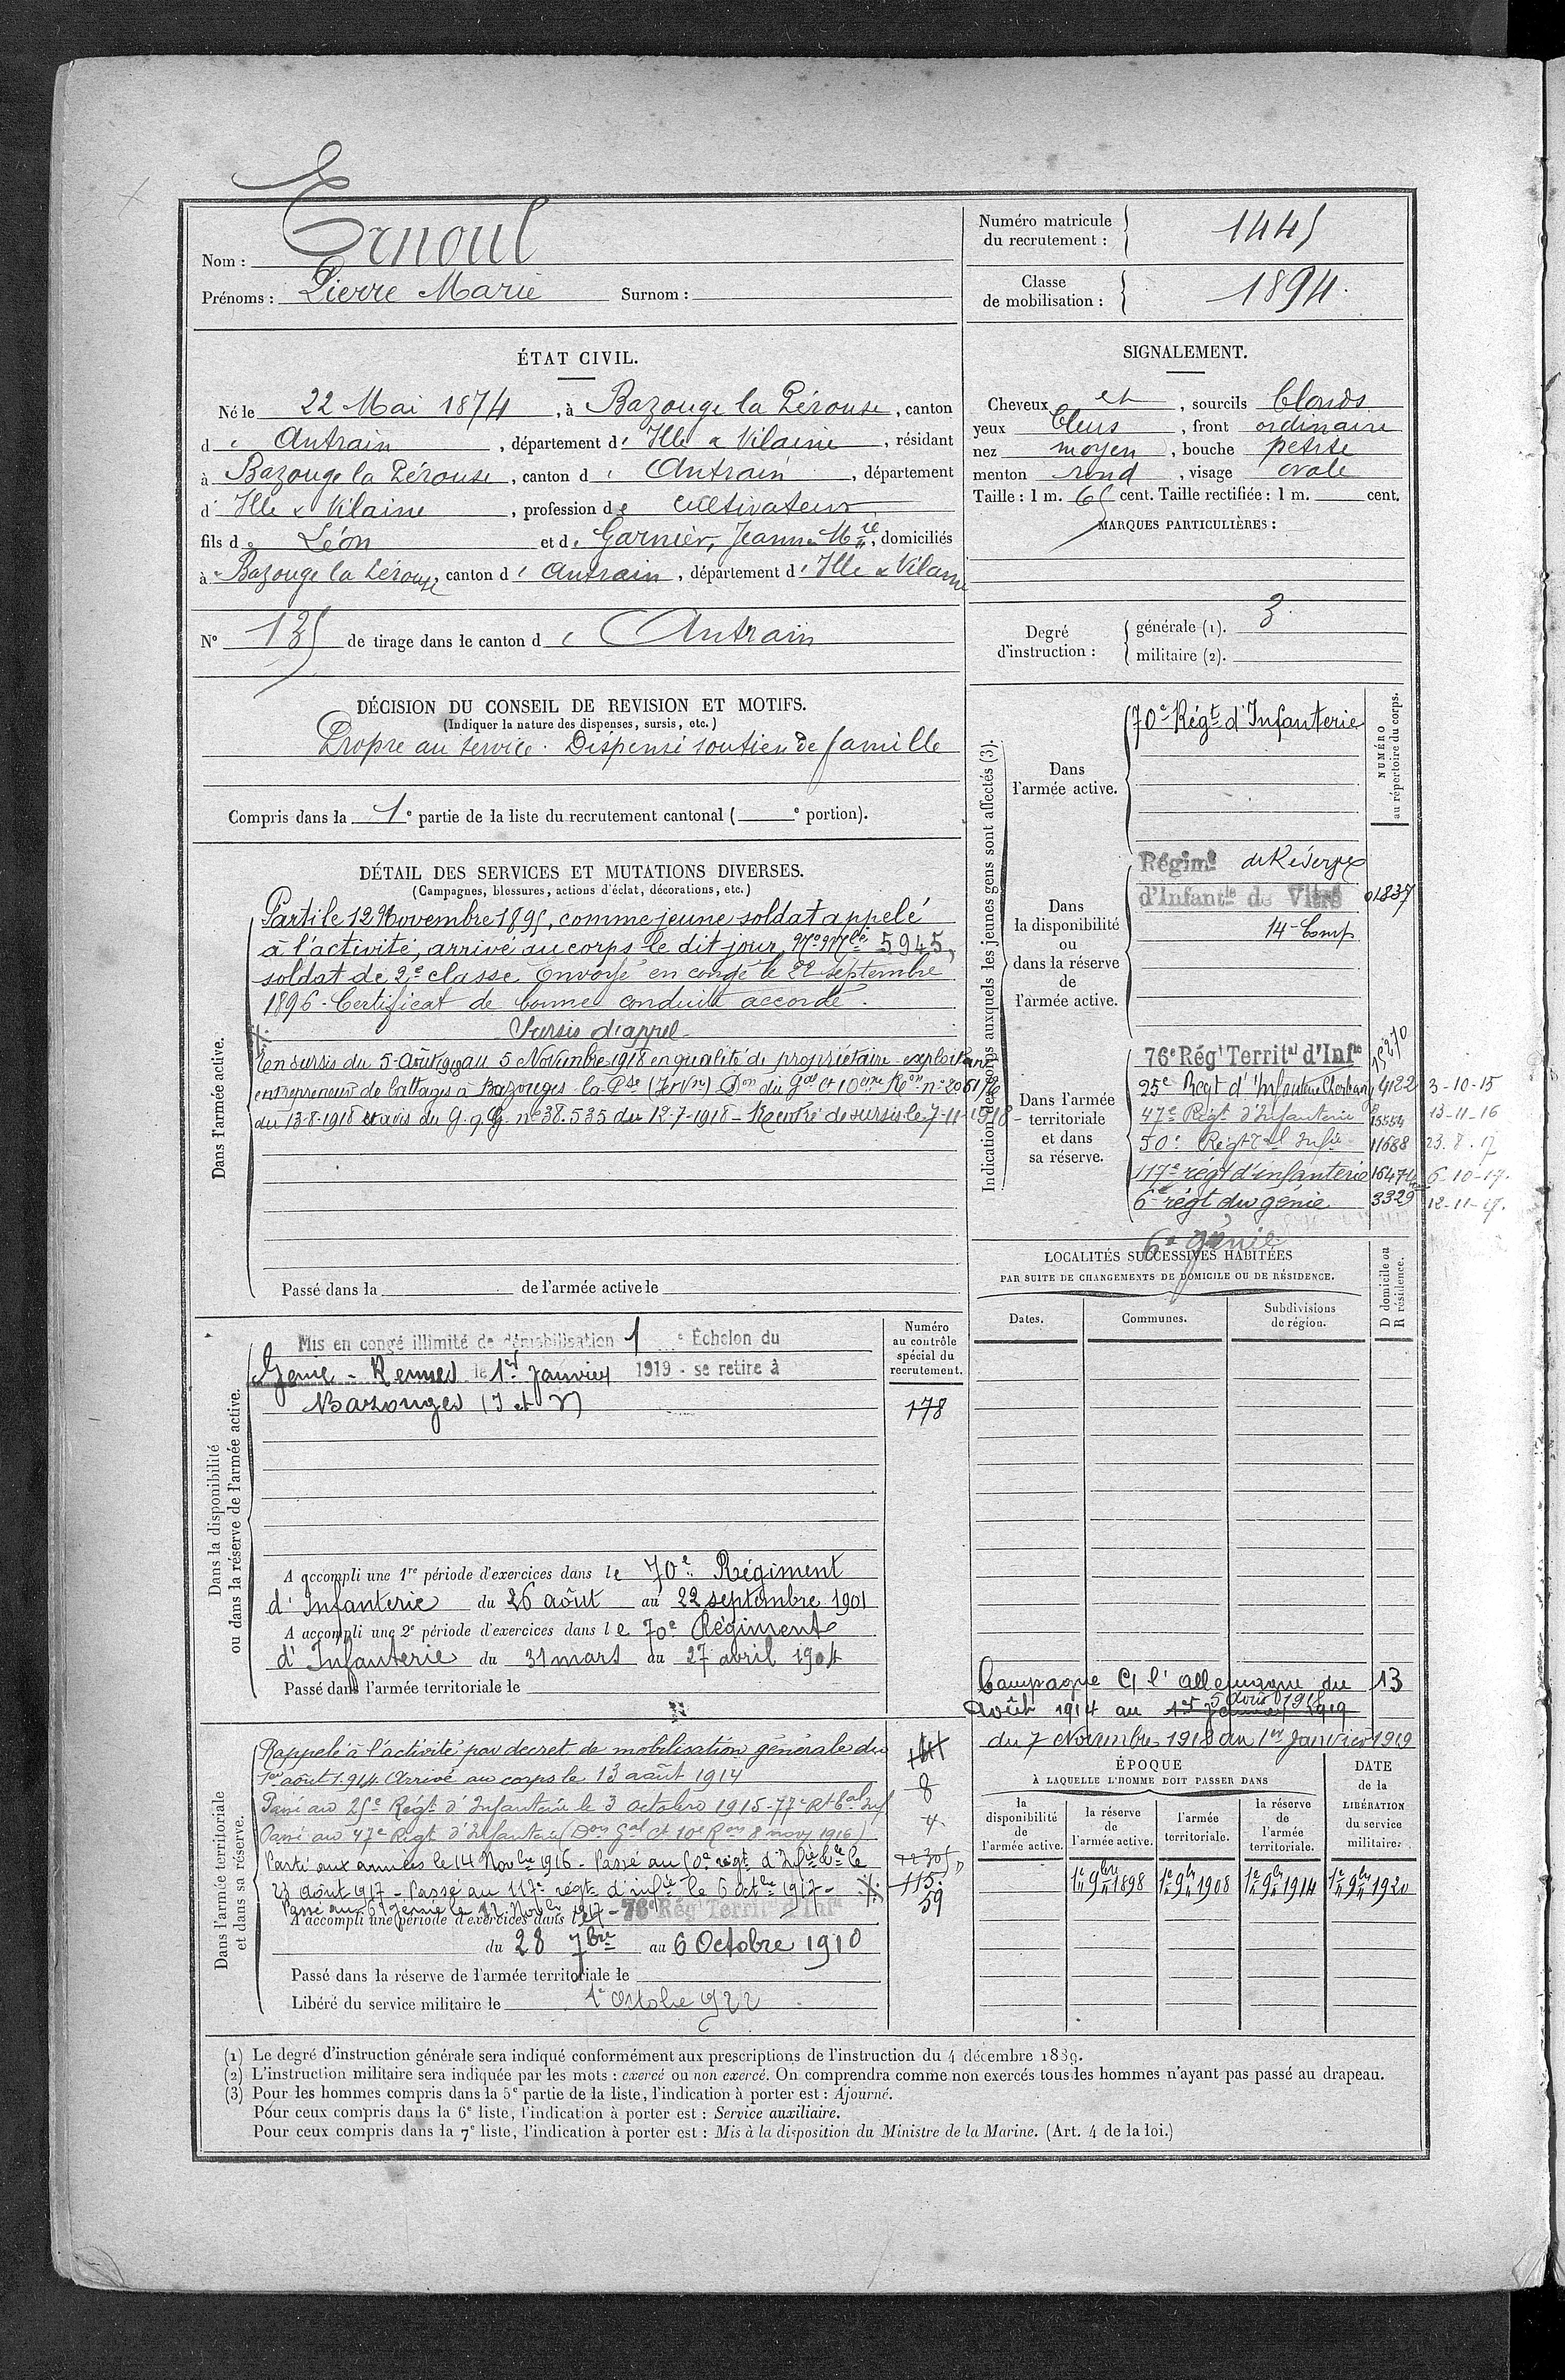 Nom : Ernoul
Prénoms : Pierre Marie Surnom :
Numéro matricule du recrutement : 1445
Classe de mobilisation : 1894.
ÉTAT CIVIL.
Né le 22 Mai 1874, à Bazouge la Pérouse, canton
d'Antrain, département d'Ille & Vilaine, résidant
à Bazouge la Pérouse, canton d'Antrain, département
d'Ille & Vilaine, profession de cultivateur
fils de Léon et de Garnier, Jeanne Mrie, domiciliés
à Bazouge la Pérouse, canton d'Antrain, département d'Ille & Vilaine
N° 135 de tirage dans le canton d'Antrain
SIGNALEMENT.
Cheveux et, sourcils blonds
yeux bleus, front ordinaire
nez moyen, bouche petite
menton rond, visage ovale
Taille : 1 m. 65 cent. Taille rectifiée : 1 m. cent.
MARQUES PARTICULIÈRES :
Degré d'instruction : générale (1). 3.
militaire (2).
DÉCISION DU CONSEIL DE REVISION ET MOTIFS.
(Indiquer la nature des dispenses, sursis, etc.)
Propre au service. Dispensé soutien de famille
Compris dans la 1e partie de la liste du recrutement cantonal ( e portion).
DÉTAIL DES SERVICES ET MUTATIONS DIVERSES.
(Campagnes, blessures, actions d'éclat, décorations, etc.)
Dans l'armée active.
Parti le 12 Novembre 1895, comme jeune soldat appelé
à l'activité, arrivé au corps le dit jour, No Mle 5945,
soldat de 2e classe. Envoyé en congé le 22 septembre
1896. Certificat de bonne conduite accordé.
Sursis d'appel
En sursis du 5 Août 1918 au 5 Novembre 1918 en qualité de propriétaire exploitant
entrepreneur de battages à Bazouges-la-Pse (I et Vne) Don du Gal Ct 10eme Ron n°
du 13-8-1918 et avis du G.Q.G. n° 38.535 du 12-7-1918 - Rentré de sursis le 7-11-1918
Passé dans la de l'armée active le
Indication des corps auxquels les jeunes gens sont affectés (3).
NUMÉRO au répertoire du corps.
Dans l'armée active.
70e Régt d'Infanterie
Dans la disponibilité ou dans la réserve de l'armée active.
Régimt de Réserve
d'Infantie de Vitré 01837
14e Comp
Dans l'armée territoriale et dans sa réserve.
76e Régt Territal d'Infie 15270
25e Regt d'Infanterie Cherbourg 4122 3-10-15
47e Régt d'Infanterie 15554 13-11-16
50e Régt d'Infie 11688 23.8.17
117e régt d'infanterie 16474 6-10-17.
6e régt du génie 3329 12-11-17.
6e génie
LOCALITÉS SUCCESSIVES HABITÉES
PAR SUITE DE CHANGEMENTS DE DOMICILE OU DE RÉSIDENCE.
Dates. Communes. Subdivisions de région. D domicile ou R résidence.
Dans la disponibilité ou dans la réserve de l'armée active.
Numéro au contrôle spécial du recrutement.
178
Mis en congé illimité de démobilisation 1 e Échelon du
Génie - Rennes le 1er Janvier 1919 - se retire à
Bazouges (I et V)
A accompli une 1re période d'exercices dans le 70e Régiment
d'Infanterie du 26 août au 22 septembre 1901
A accompli une 2e période d'exercices dans le 70e Régiment
d'Infanterie du 31 mars au 27 avril 1904
Passé dans l'armée territoriale le
Campagne C/ l'Allemagne du 13
Août 1914 au 1er Janvier 1919 5 Août 1918
du 7 Novembre 1918 au 1er Janvier 1919
Dans l'armée territoriale et dans sa réserve.
Rappelé à l'activité par décret de mobilisation générale du
1er août 1914. Arrivé au corps le 13 août 1914
Passé au 25e Régt d'Infanterie le 3 Octobre 1915
Passé au 47e Régt d'Infanterie (Don Gal Ct 10e Ron 8 nov 1916)
Parti aux armées le 14 Novbre 1916 - Passé au 50e régt d'Infie le
23 Août 1917 - Passé au 117e régt d'infie le 6 octbre 1917 -
Passé au 6e génie le 12 Novbre 1917 -
A accompli une période d'exercices dans le 76e Régt Territal d'Infie
du 28 7bre au 6 Octobre 1910
Passé dans la réserve de l'armée territoriale le
Libéré du service militaire le 1er Octobre 1922
8
4
115
59
ÉPOQUE
À LAQUELLE L'HOMME DOIT PASSER DANS
la disponibilité de l'armée active. la réserve de l'armée active. l'armée territoriale. la réserve de l'armée territoriale.
DATE de la LIBÉRATION du service militaire.
1e 9bre 1898 1e 9bre 1908 1e 9bre 1914 1e 9bre 1920
(1) Le degré d'instruction générale sera indiqué conformément aux prescriptions de l'instruction du 4 décembre 1889.
(2) L'instruction militaire sera indiquée par les mots : exercé ou non exercé. On comprendra comme non exercés tous les hommes n'ayant pas passé au drapeau.
(3) Pour les hommes compris dans la 5e partie de la liste, l'indication à porter est : Ajourné.
Pour ceux compris dans la 6e liste, l'indication à porter est : Service auxiliaire.
Pour ceux compris dans la 7e liste, l'indication à porter est : Mis à la disposition du Ministre de la Marine. (Art. 4 de la loi.)